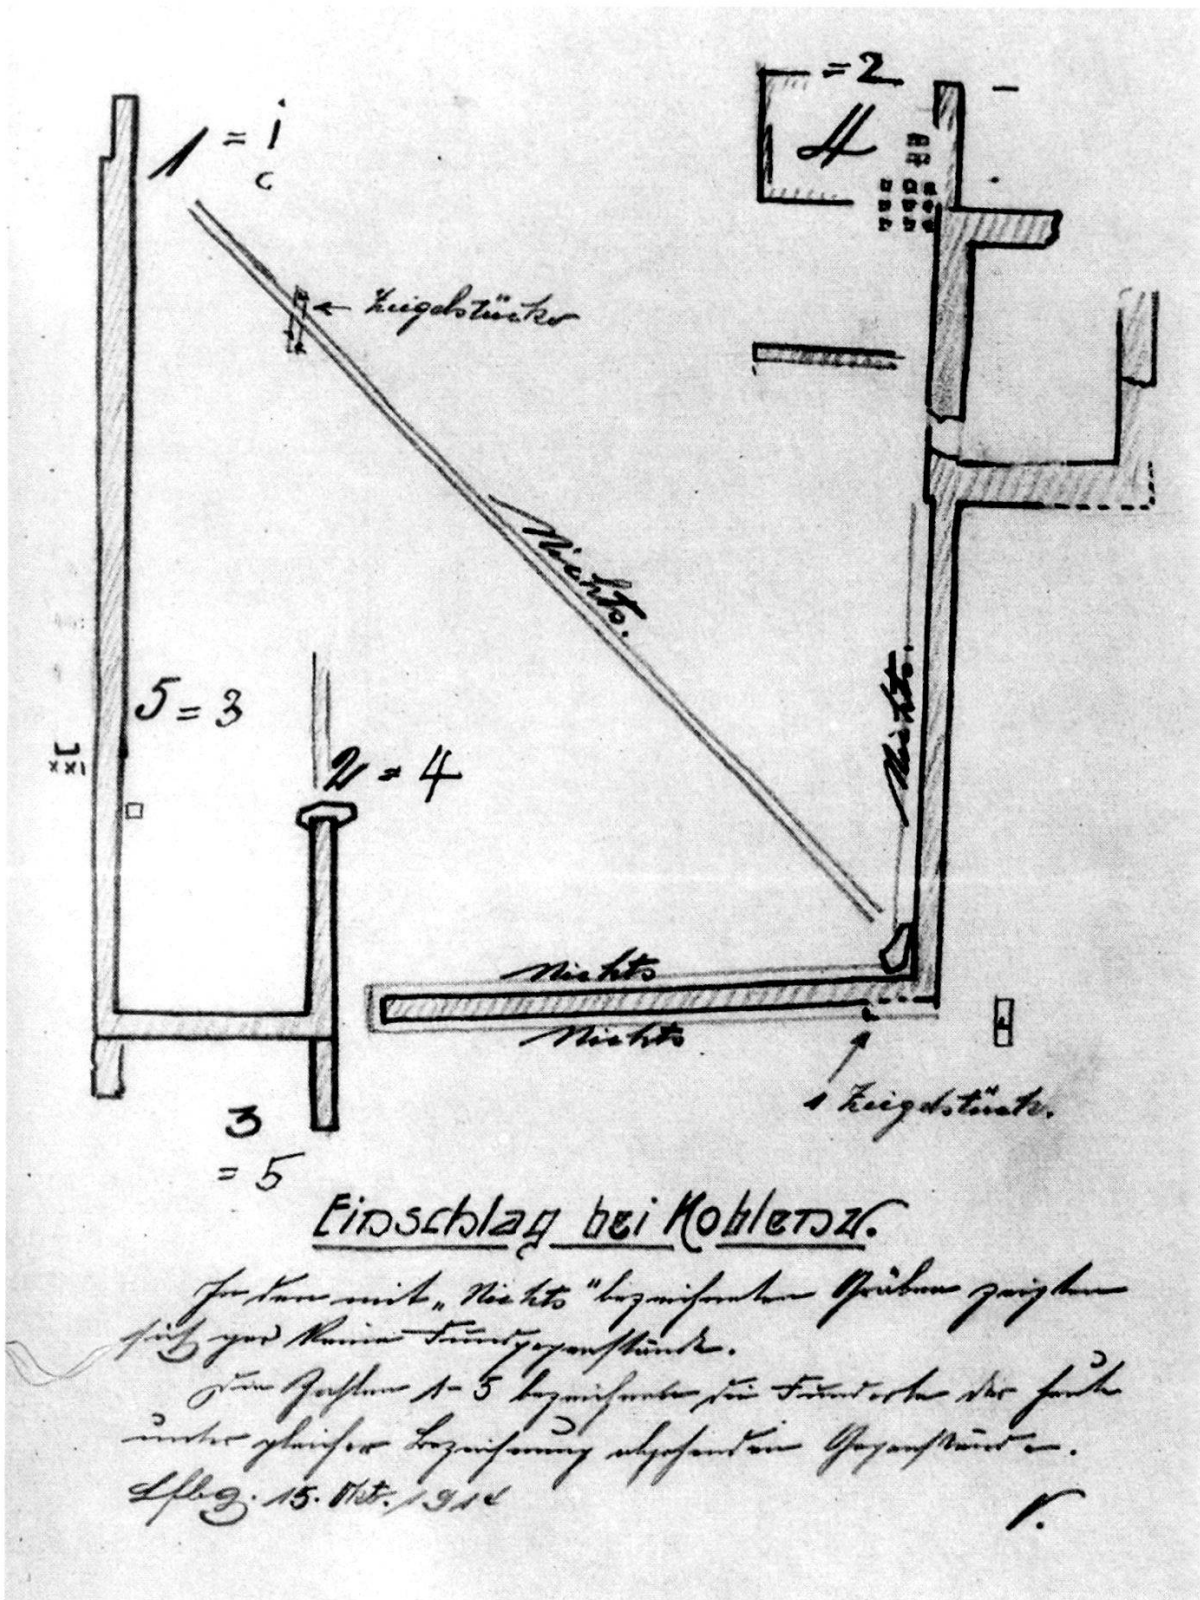 = 2
1 = i
c
4
← Ziegelstücke
Nichts.
Nichts.
5 = 3
2 = 4
Nichts
Nichts
1 Ziegelstück.
3
= 5
Einschlag bei Koblenz.
In den mit „Nichts" bezeichneten Gräben zeigten
sich gar keine Fundgegenstände.
Die Zahlen 1-5 bezeichnen die Fundorte der heute
unter gleicher Bezeichnung abgehenden Gegenstände.
Lfbg. 15. Okt. 1914